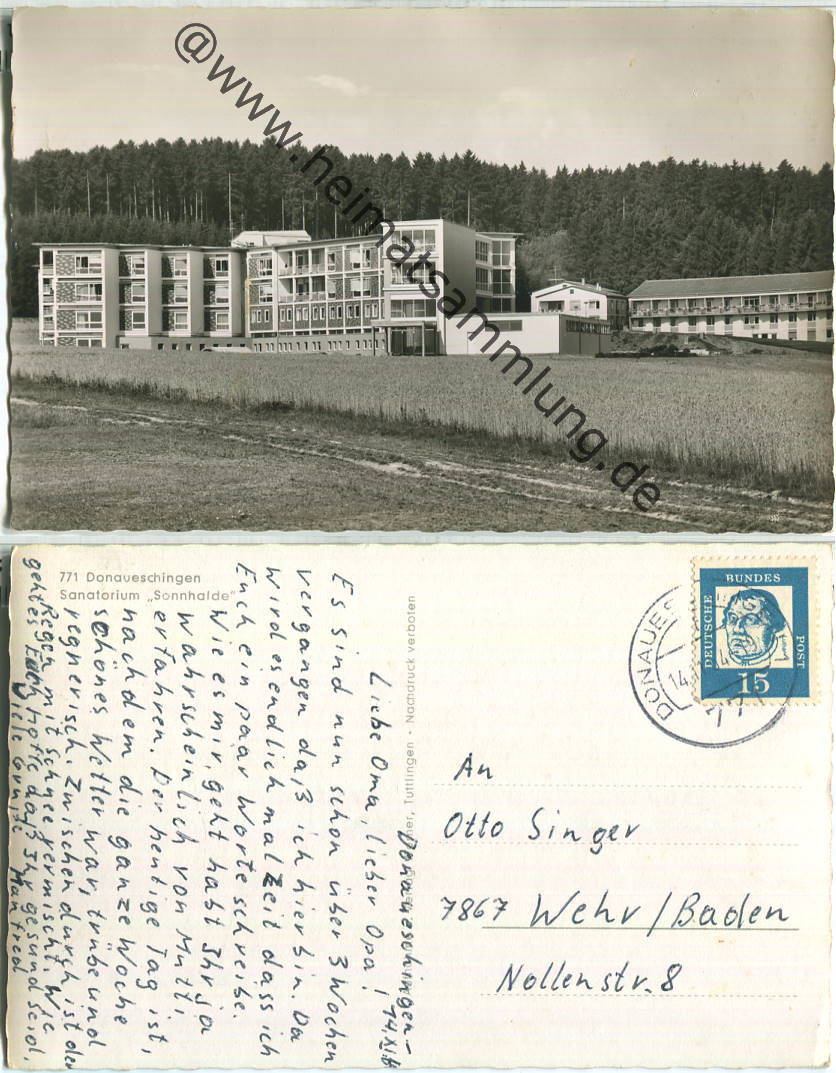 @www.heimatsammlung.de
771 Donaueschingen
Sanatorium „Sonnhalde"
Donaueschingen
Liebe Oma, lieber Opa!
Es sind nun schon über 3 Wochen
vergangen daß ich hier bin. Da
wird es endlich mal Zeit dass ich
Euch ein paar Worte schreibe.
Wie es mir geht habt Ihr ja
wahrscheinlich von Mutti,
erfahren. Der heutige Tag ist,
nachdem die ganze Woche
schönes Wetter war, trübe und
regnerisch. Zwischendurch ist der
Regen mit Schnee vermischt. Wie
geht es Euch hoffe daß Ihr gesund seid.
Viele Grüße Manfred
Tuttlingen · Nachdruck verboten
DEUTSCHE
BUNDES
POST
15
DONAUES
An
Otto Singer
7867 Wehr/Baden
Nollenstr. 8